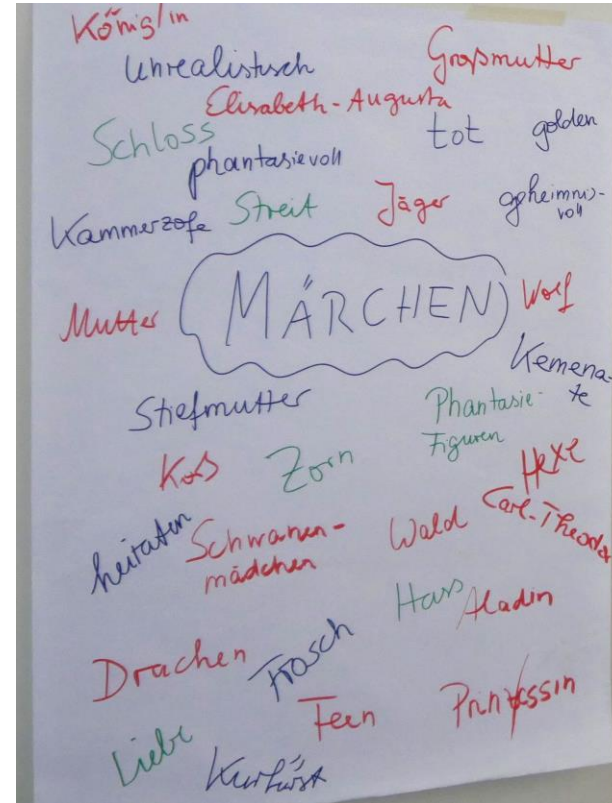 König/in
Unrealistisch
Großmutter
Elisabeth-Augusta
Schloss
tot
golden
phantasievoll
Kammerzofe
Streit
Jäger
geheimnis-
voll
Mutter
MÄRCHEN
Wolf
Kemena-
te
Stiefmutter
Phantasie-
Figuren
Zorn
Hexe
heiraten
Schwanen-
mädchen
Wald
Carl-Theodor
Hass
Aladin
Drachen
Frosch
Feen
Prinzessin
Liebe
Kurfürst